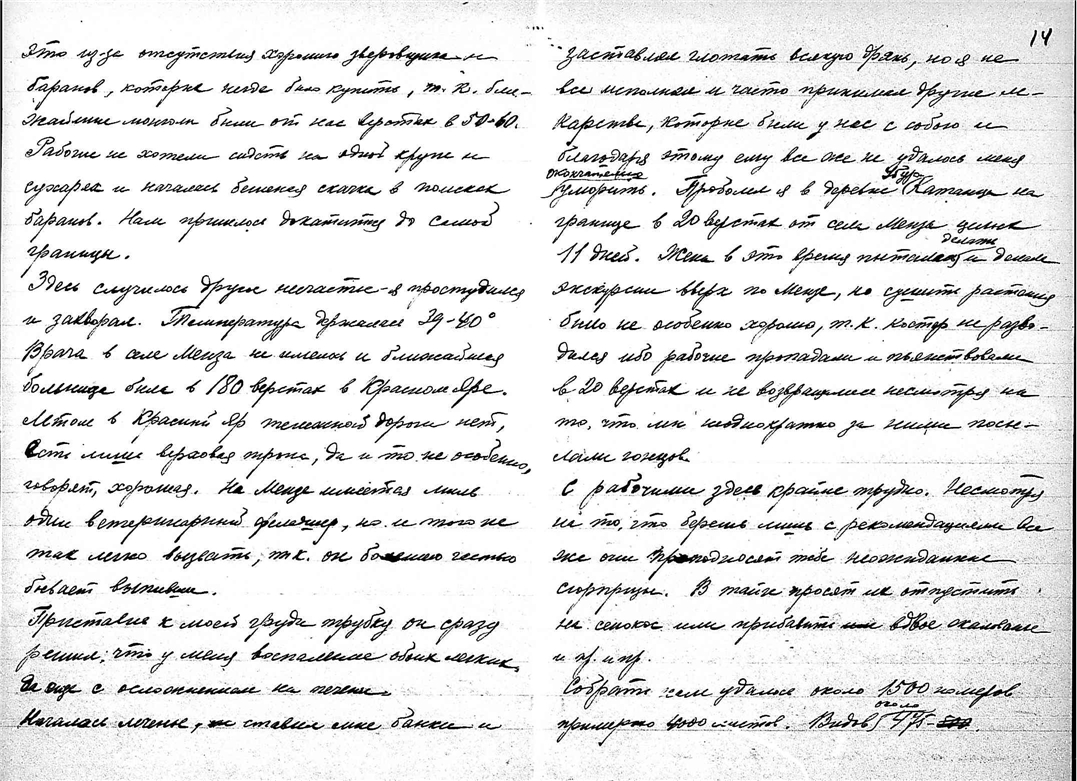 это из-за отсутствия хорошего зверовщика и
баранов, которых негде было купить, т.к. бли-
жайшие монголы были от нас верстах в 50-60.
Рабочие не хотели сидеть на одной крупе и
сухарях и началась бешеная скачка в поисках
баранов. Нам пришлось докатиться до самой
границы.
Здесь случилось другое несчастие - я простудился
и захворал. Температура держалась 39-40°
Врача в селе Менза не имелось и ближайшая
больница была в 180 верстах в Красном Яре.
Летом в Красный Яр тележной дороги нет,
есть лишь верховая тропа, да и то не особенно,
говорят, хорошая. На Мензе имеется лишь
один ветеринарный фельдшер, но и того не
так легко вызвать, т.к. он большею частью
бывает выпивши.
Приставив к моей груди трубку он сразу
решил, что у меня воспаление обоих легких,
да еще с осложнением на печень.
Началось леченье, ставил мне банки и
14
заставлял глотать всякую дрянь, но я не
все исполнял и часто принимал другие ле-
карства, которые были у нас с собою и
благодаря этому ему все же не удалось меня
окончательно уморить. Проболел я в деревне Бур Катанца на
границе в 20 верстах от села Менза целых
11 дней. Жена в это время пыталась делать и делала
экскурсии вверх по Мензе, но сушить растения
было не особенно хорошо, т.к. костер не разво-
дился ибо рабочие пропадали и пьянствовали
в 20 верстах и не возвращались несмотря на
то, что мы неоднократно за ними посы-
лали гонцов.
С рабочими здесь крайне трудно. Несмотря
на то, что берешь лишь с рекомендациями все
же они преподносят тебе неожиданные
сюрпризы. В тайге просят их отпустить
на сенокос или прибавить вдвое жалованье
и пр. и пр.
Собрать нам удалось около 1500 номеров
примерно 4000 листов. Видов около 475-500.